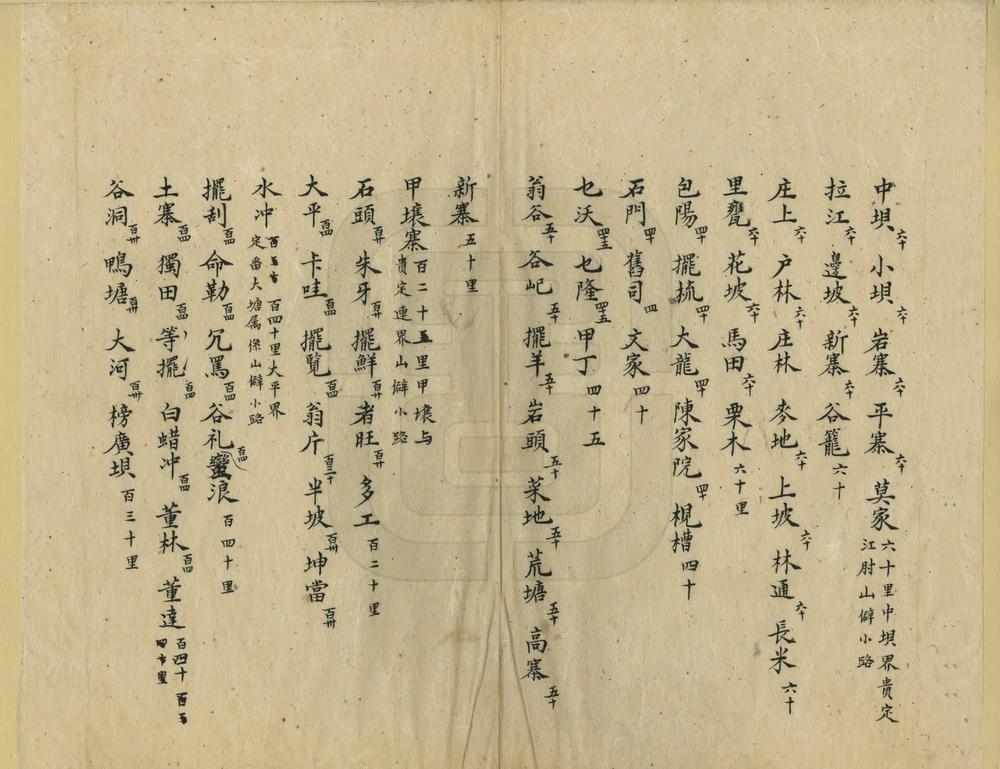 中坝六十 小坝六十 岩寨六十 平寨六十 莫家六十里中坝界貴定江肘山僻小路
拉江六十 邊坡六十 新寨六十 谷籠六十
庄上六十 户林六十 庄林 麥地六十 上坡六十 林通六十 長米六十
里甕六十 花坡六十 馬田六十 栗木六十里
包陽四十 擺梳四十 大龍四十 陳家院四十 槻槽四十
石門四十 舊司四 文家四十
乜沃四五 乜隆四五 甲丁四十五
翁谷五十 谷屺五十 擺羊五十 岩頭五十 菜地五十 荒塘五十 高寨五十
新寨五十里
甲壤寨百二十五里甲壤与貴定連界山僻小路
石頭百廿 朱牙百廿 擺鮮百廿 者旺百廿 多工百二十里
大平百四 卡哇百四 擺覽百四 翁片百三十 半坡百卅 坤當百卅
水冲 百四十里大平界定番大塘属傜山僻小路
擺刮百四 命勒百四 冗罵百四 谷礼 蠻浪百四十里
土寨百四 獨田百四 等擺百四 白蜡冲百四 董林百四 董達百四十
谷洞百卅 鴨塘百卅 大河百卅 榜廣坝百三十里